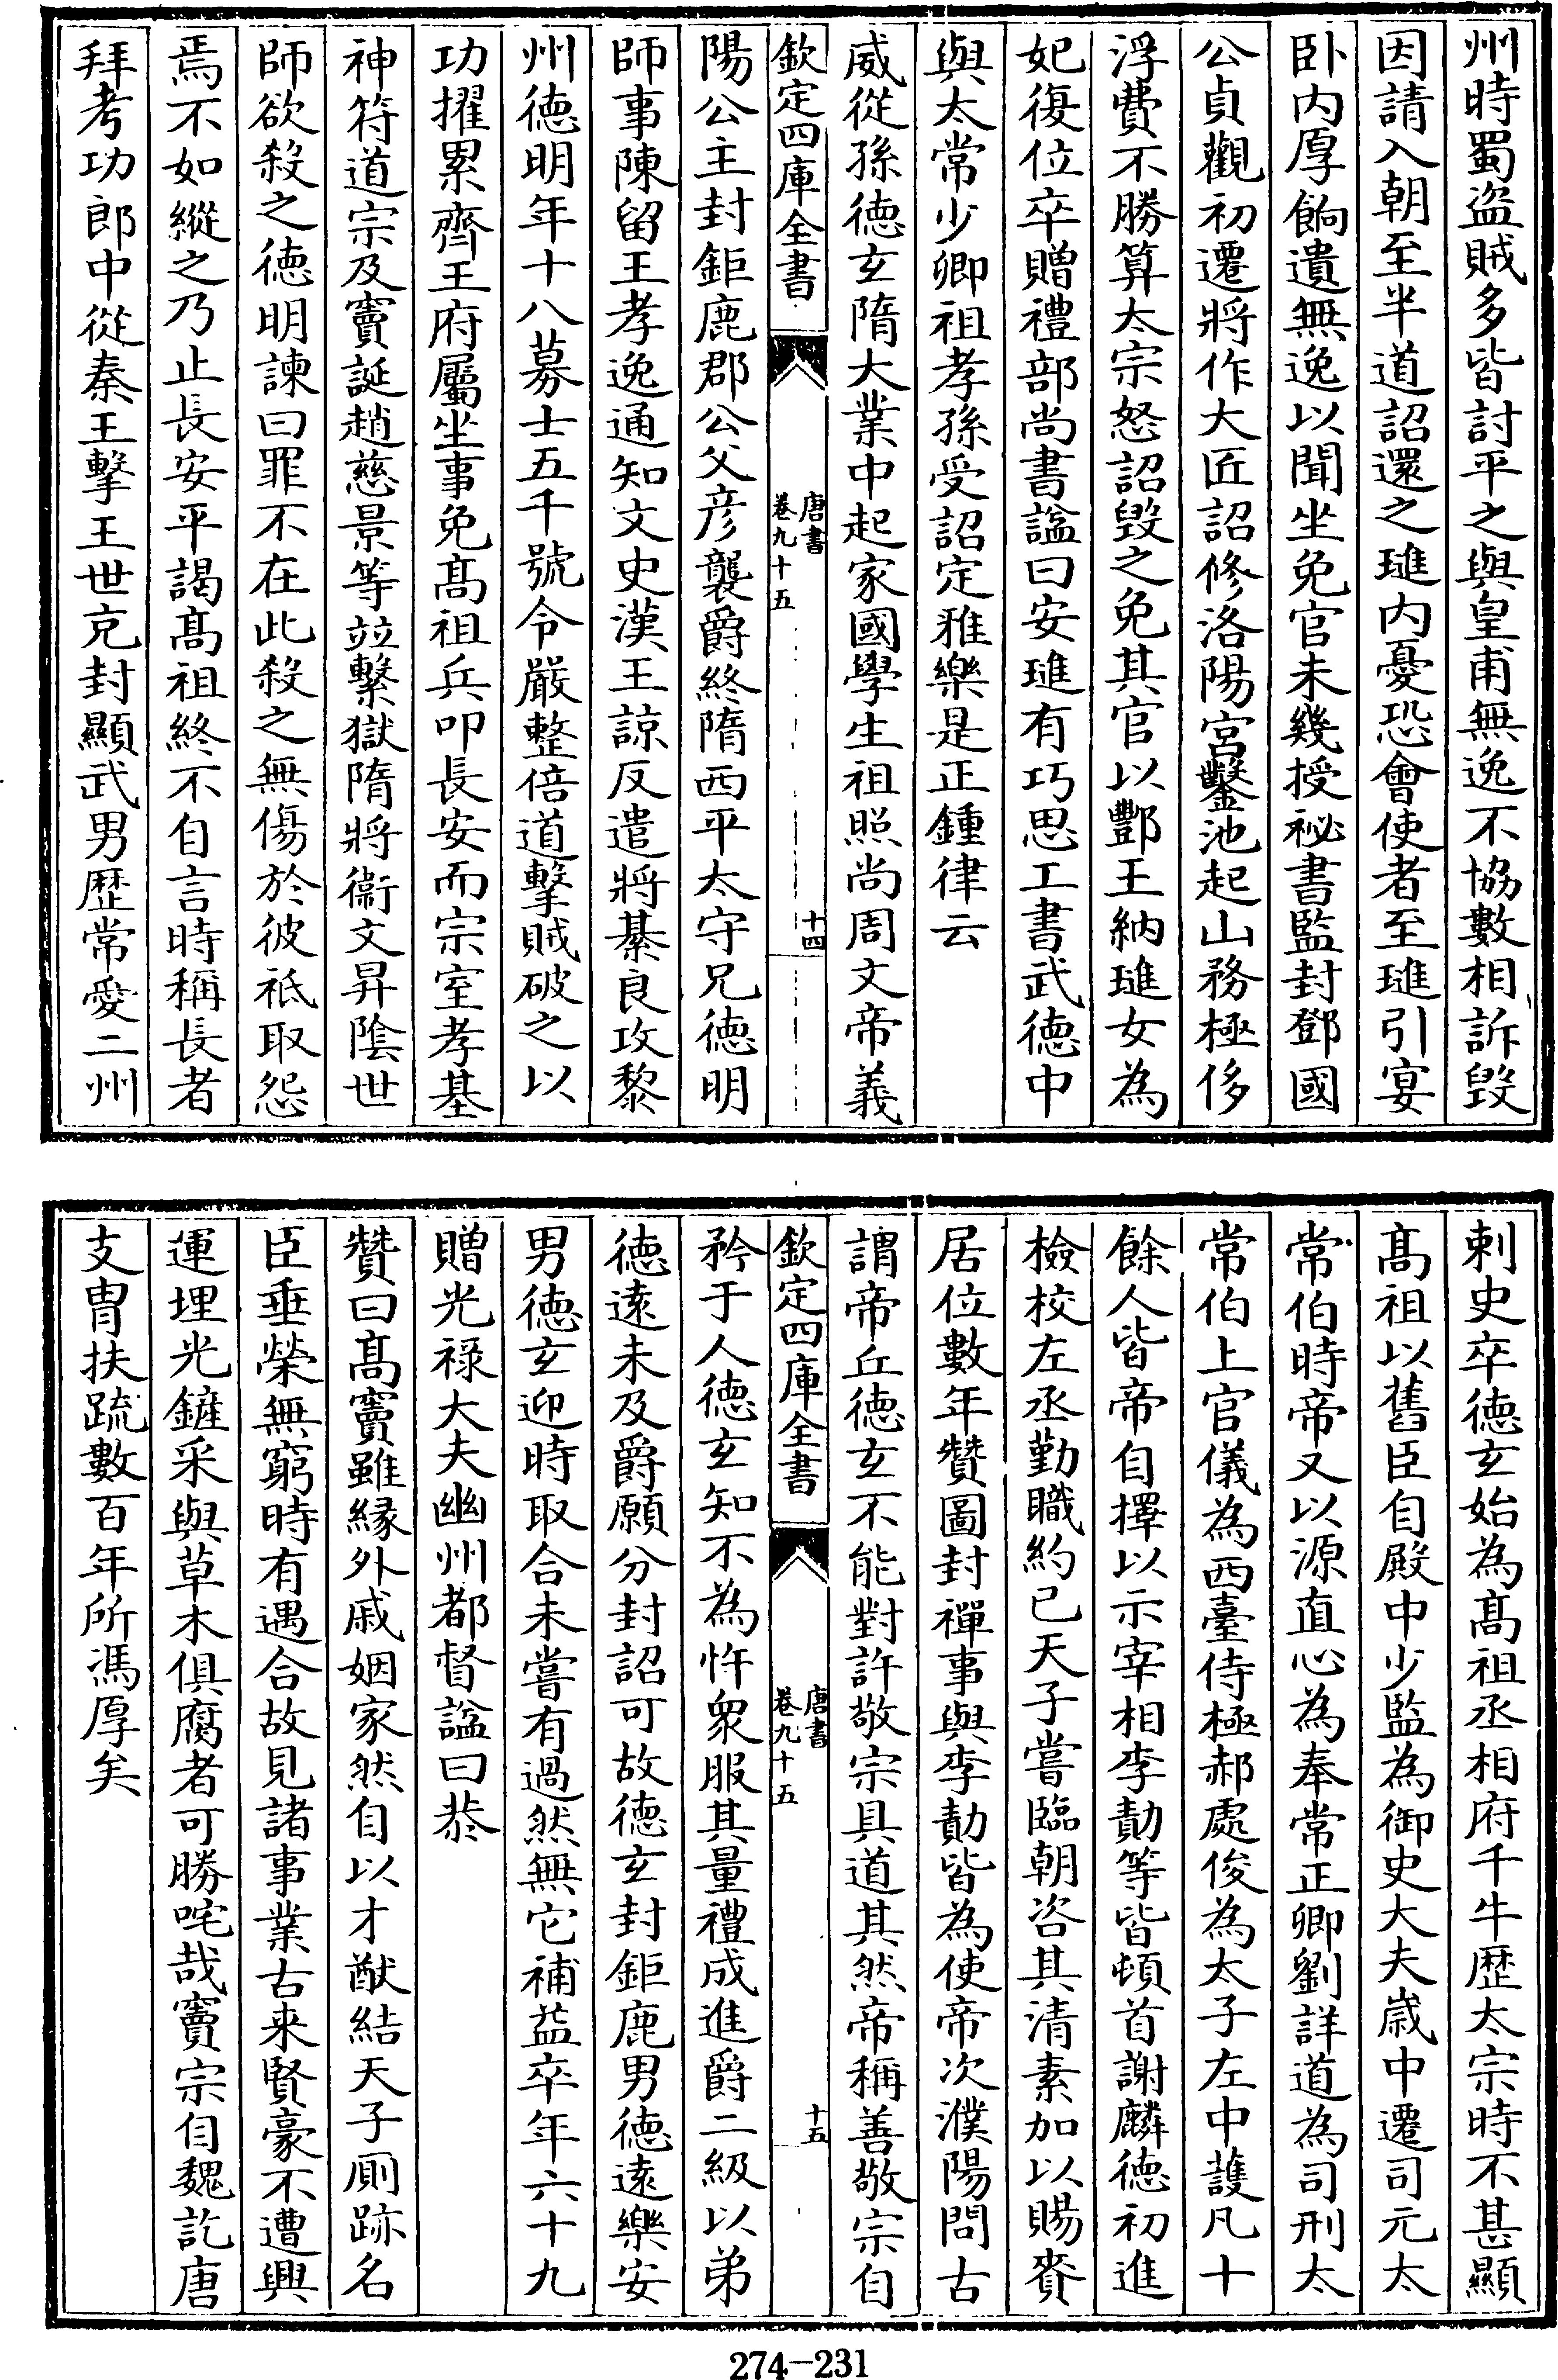 州時蜀盜賊多皆討平之與皇甫無逸不協數相訴毀
因請入朝至半道詔還之璡内憂恐㑹使者至璡引宴
卧内厚餉遺無逸以聞坐免官未幾授祕書監封鄧國
公貞觀初遷將作大匠詔修洛陽宫鑿池起山務極侈
浮費不勝算太宗怒詔毀之免其官以酆王納璡女為
妃復位卒贈禮部尚書諡曰安璡有巧思工書武徳中
與太常少卿祖孝孫受詔定雅樂是正鍾律云
威從孫徳玄隋大業中起家國學生祖照尚周文帝義
欽定四庫全書
唐書
卷九十五
十四
陽公主封鉅鹿郡公父彦襲爵終隋西平太守兄徳明
師事陳留王孝逸通知文史漢王諒反遣將綦良攻黎
州徳明年十八募士五千號令嚴整倍道擊賊破之以
功擢累齊王府屬坐事免髙祖兵叩長安而宗室孝基
神符道宗及竇誕趙慈景等竝繫獄隋將衞文昇隂世
師欲殺之徳明諫曰罪不在此殺之無傷於彼祇取怨
焉不如縱之乃止長安平謁髙祖終不自言時稱長者
拜考功郎中從秦王擊王世充封顯武男歴常愛二州
刺史卒徳玄始為髙祖丞相府千牛歴太宗時不甚顯
髙祖以舊臣自殿中少監為御史大夫嵗中遷司元太
常伯時帝又以源直心為奉常正卿劉詳道為司刑太
常伯上官儀為西臺侍極郝處俊為太子左中護凡十
餘人皆帝自擇以示宰相李勣等皆頓首謝麟徳初進
檢校左丞勤職約已天子嘗臨朝咨其清素加以賜賚
居位數年贊圖封禪事與李勣皆為使帝次濮陽問古
謂帝丘徳玄不能對許敬宗具道其然帝稱善敬宗自
欽定四庫全書
唐書
卷九十五
十五
矜于人徳玄知不為忤衆服其量禮成進爵二級以弟
徳逺未及爵願分封詔可故徳玄封鉅鹿男徳逺樂安
男徳玄迎時取合未嘗有過然無它補益卒年六十九
贈光禄大夫幽州都督諡曰恭
贊曰髙竇雖縁外戚姻家然自以才猷結天子厠跡名
臣垂榮無窮時有遇合故見諸事業古来賢豪不遭興
運埋光鏟采與草木俱腐者可勝咤哉竇宗自魏訖唐
支胄扶疏數百年所馮厚矣
274-231